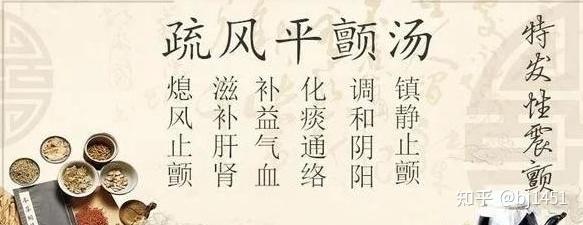 疏风平颤汤
特发性震颤
镇静止颤
调和阴阳
化痰通络
补益气血
滋补肝肾
熄风止颤
知乎 @bj1451